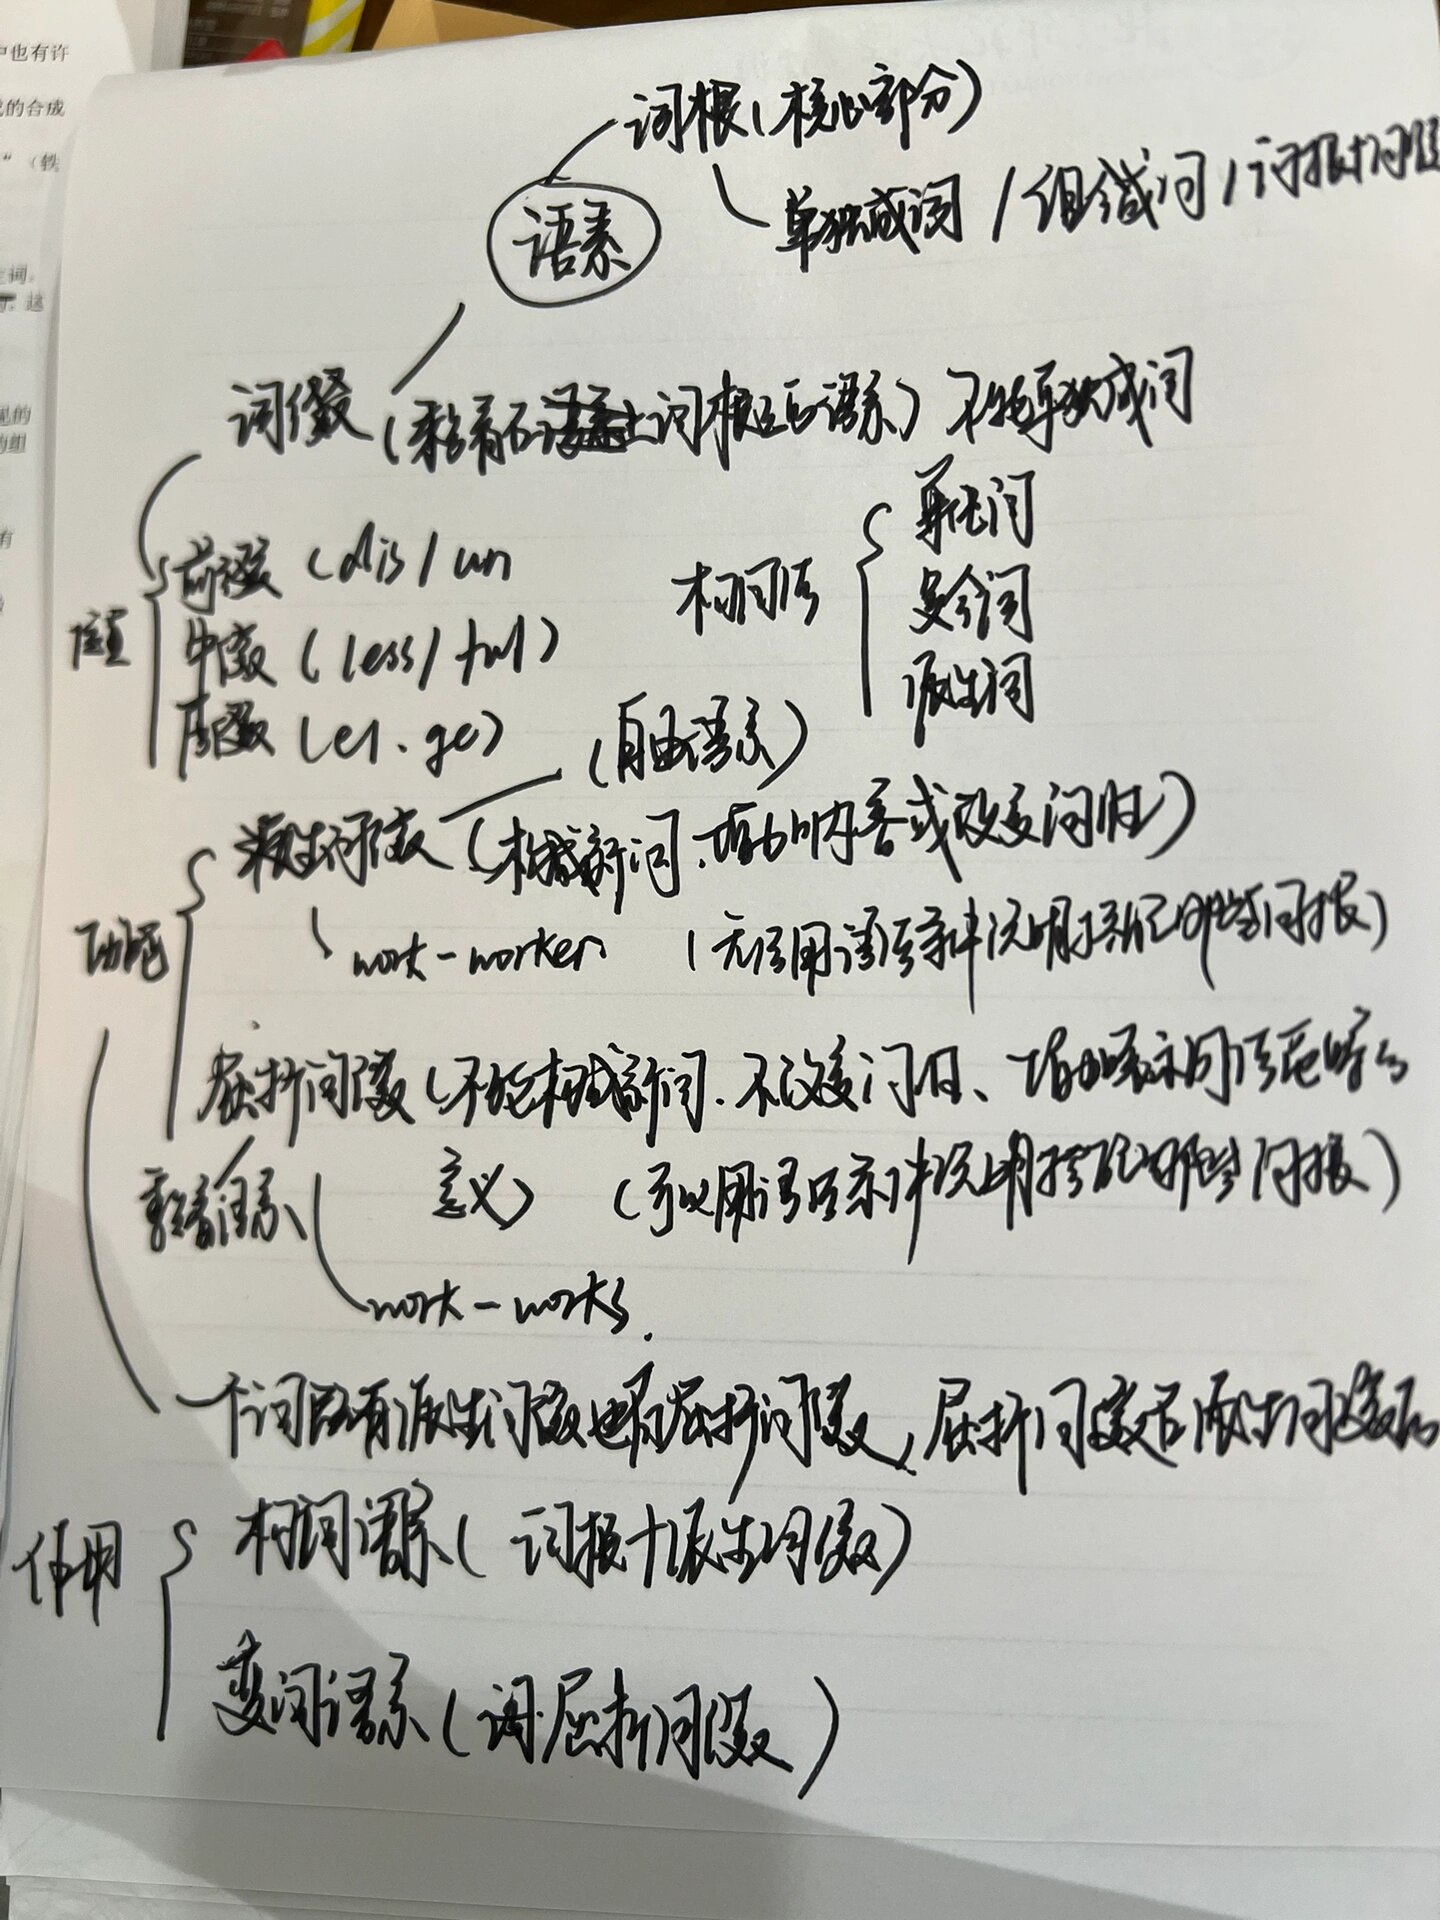 中也有许
的合成
词根(核心部分)
单独成词 / 组合成词 / 词根+词缀
语素
词缀 (黏着在词根上的语素) 不能单独成词
位置
前缀 (dis/un
中缀 (less/ful)
后缀 (er.ge)
构词法
单纯词
复合词
派生词
(自由语素)
功能
派生词缀 (构成新词.增加内容或改变词性)
work-worker (无法用语法条件说明接在哪些词根)
屈折词缀 (不能构成新词.不改变词性、增加表示词法范畴的
意义) (可以用语法条件说明接在哪些词根)
黏着语素
work-works.
一个词既有派生词缀也有屈折词缀,屈折词缀在派生词缀后
作用
构词语素(词根+派生词缀)
变词语素(屈折词缀)